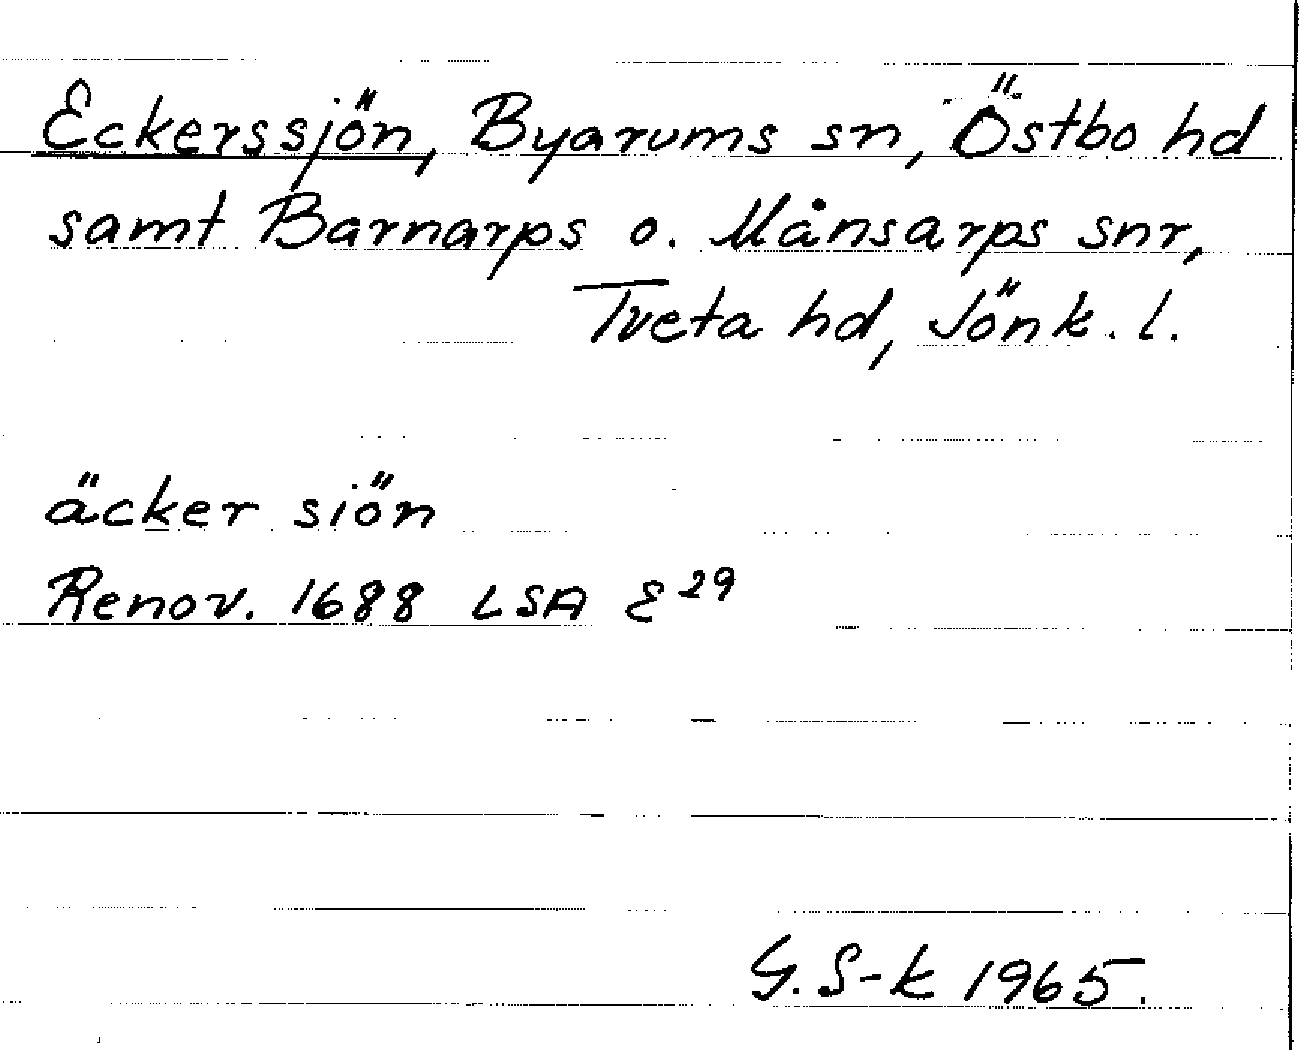 Eckerssjön, Byarums sn, Östbo hd
samt Barnarps o. Månsarps snr,
Tveta hd, Jönk. l.
äcker siön
Renov. 1688 LSA E²⁹
G. S-k 1965.